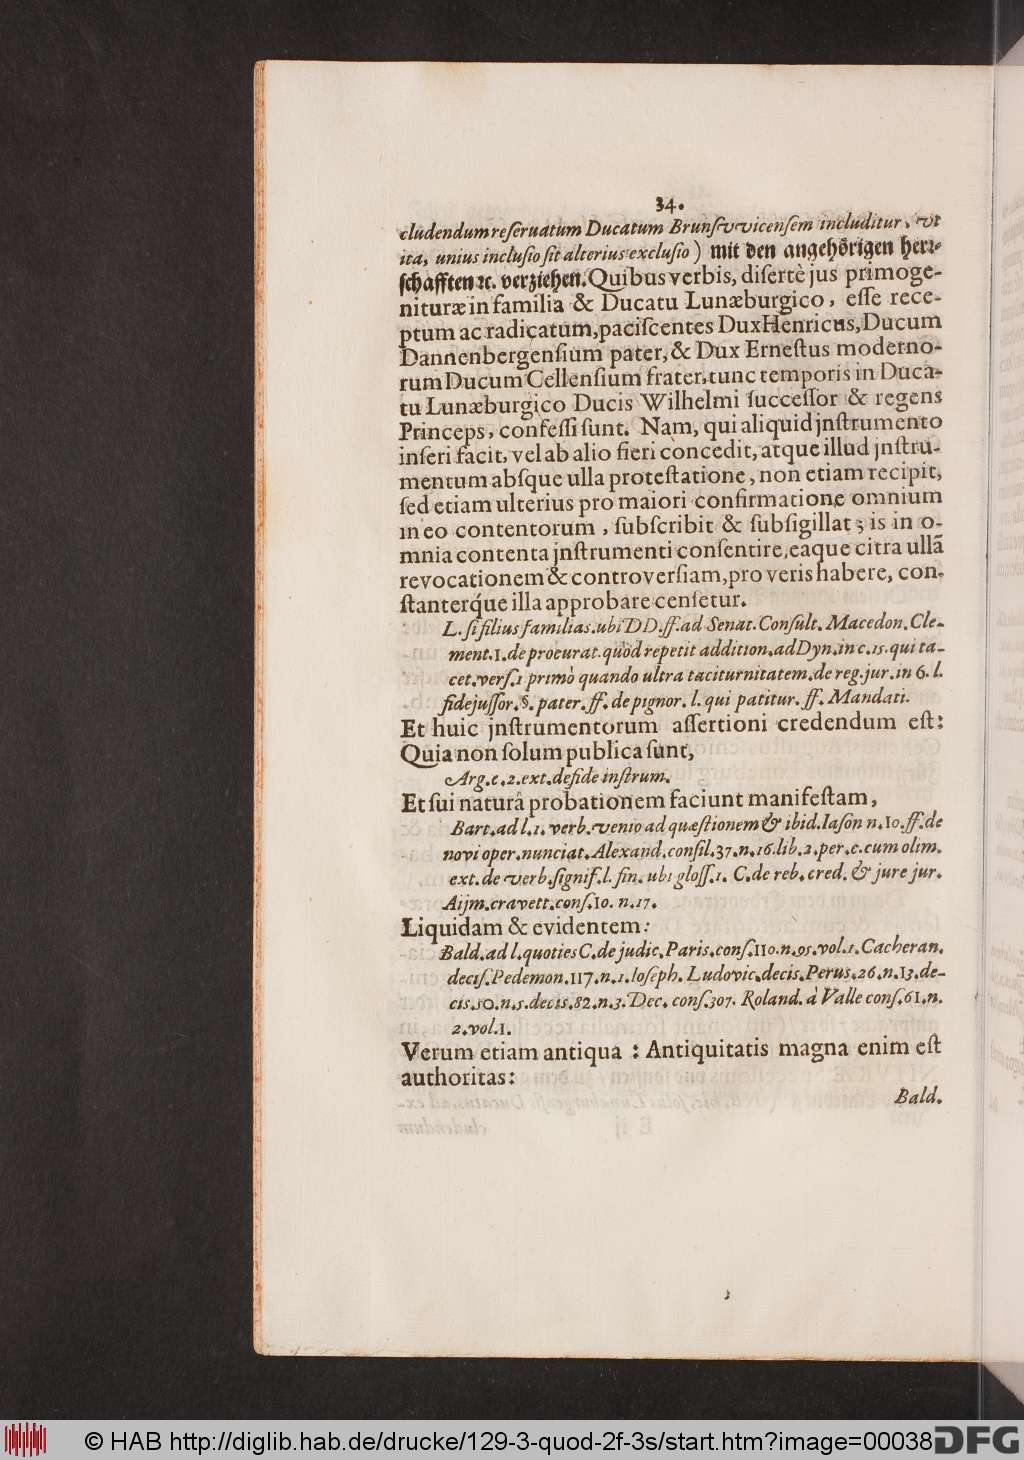 34.
cludendum reſervatum Ducatum Brunſvvicenſem includitur, vt
ita, unius incluſio ſit alterius excluſio) mit den angehörigen herr⸗
ſchafften ꝛc. verziehen. Quibus verbis, diſertè jus primoge-
nituræ in familia & Ducatu Lunæburgico, eſſe rece-
ptum ac radicatum, paciſcentes Dux Henricus, Ducum
Dannenbergenſium pater, & Dux Erneſtus moderno-
rum Ducum Cellenſium frater, tunc temporis in Duca-
tu Lunæburgico Ducis Wilhelmi ſucceſſor & regens
Princeps, confeſſi ſunt. Nam, qui aliquid jnſtrumento
inſeri facit, vel ab alio fieri concedit, atque illud jnſtru-
mentum abſque ulla proteſtatione, non etiam recipit,
ſed etiam ulterius pro maiori confirmatione omnium
in eo contentorum, ſubſcribit & ſubſigillat; is in o-
mnia contenta jnſtrumenti conſentire, eaque citra ullã
revocationem & controverſiam, pro veris habere, con-
ſtanterq́ue illa approbare cenſetur.
L. ſi filius familias. ubi DD. ff. ad Senat. Conſult. Macedon. Cle-
ment. 1. de procurat. quòd repetit addition. ad Dyn. in c. 15. qui ta-
cet. verſ. 1 primò quando ultra taciturnitatem. de reg. jur. in 6. l.
fidejuſſor. §. pater. ff. de pignor. l. qui patitur. ff. Mandati.
Et huic jnſtrumentorum aſſertioni credendum eſt:
Quia non ſolum publica ſunt,
Arg. c. 2. ext. de fide inſtrum.
Et ſui naturâ probationem faciunt manifeſtam,
Bart. ad l. 1. verb. venio ad quæſtionem & ibid. Iaſon n. 10. ff. de
novi oper. nunciat. Alexand. conſil. 37. n. 16. lib. 2. per. c. cum olim.
ext. de verb. ſignif. l. fin. ubi gloſſ. 1. C. de reb. cred. & jure jur.
Aijm. cravett. conſ. 10. n. 17.
Liquidam & evidentem:
Bald. ad l. quoties C. de judic. Paris. conſ. 110. n. 95. vol. 1. Cacheran.
deciſ. Pedemon. 117. n. 1. Ioſeph. Ludovic. decis. Perus. 26. n. 13. de-
cis. 50. n. 5. decis. 82. n. 3. Dec. conſ. 307. Roland. à Valle conſ. 61. n.
2. vol. 1.
Verum etiam antiqua: Antiquitatis magna enim eſt
authoritas:
Bald.
© HAB http://diglib.hab.de/drucke/129-3-quod-2f-3s/start.htm?image=00038
DFG